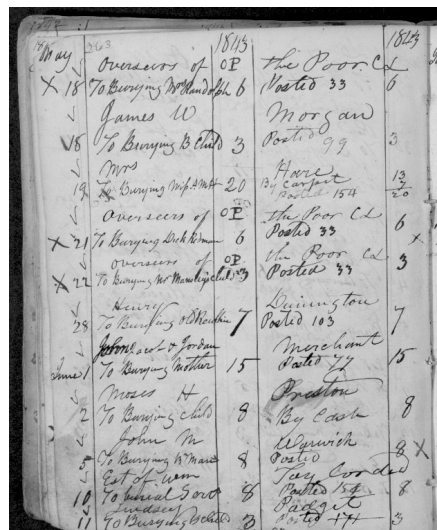 May 1843 1843
Overseers of OP the Poor Cd
X 18 To Burying Mr Randolph 6 Posted 33 6
James W Morgan
18 To Burying B Child 3 Posted 99 3
Mrs Hare 13
19 To Burying 20 By Carpet 7
Posted 154 20
Overseers of OP the Poor Cd
X 21 To Burying Dick Redman 6 Posted 33 6
Overseers of OP the Poor Cd
X 22 To Burying Mr child 3 Posted 33 3
Henry Dunington
28 To Burying Old 7 Posted 103 7
Jacob & Jordan Merchant
June 1 To Burying Mother 15 Posted 77 15
Moses H Preston
2 To Burying Child 8 By Cash 8
John M Warwick
5 To Burying 8 Posted 8
Est of Wm
10 To 8 Posted 154 8
Lindsey Padget
11 To Burying child 3 Posted 3